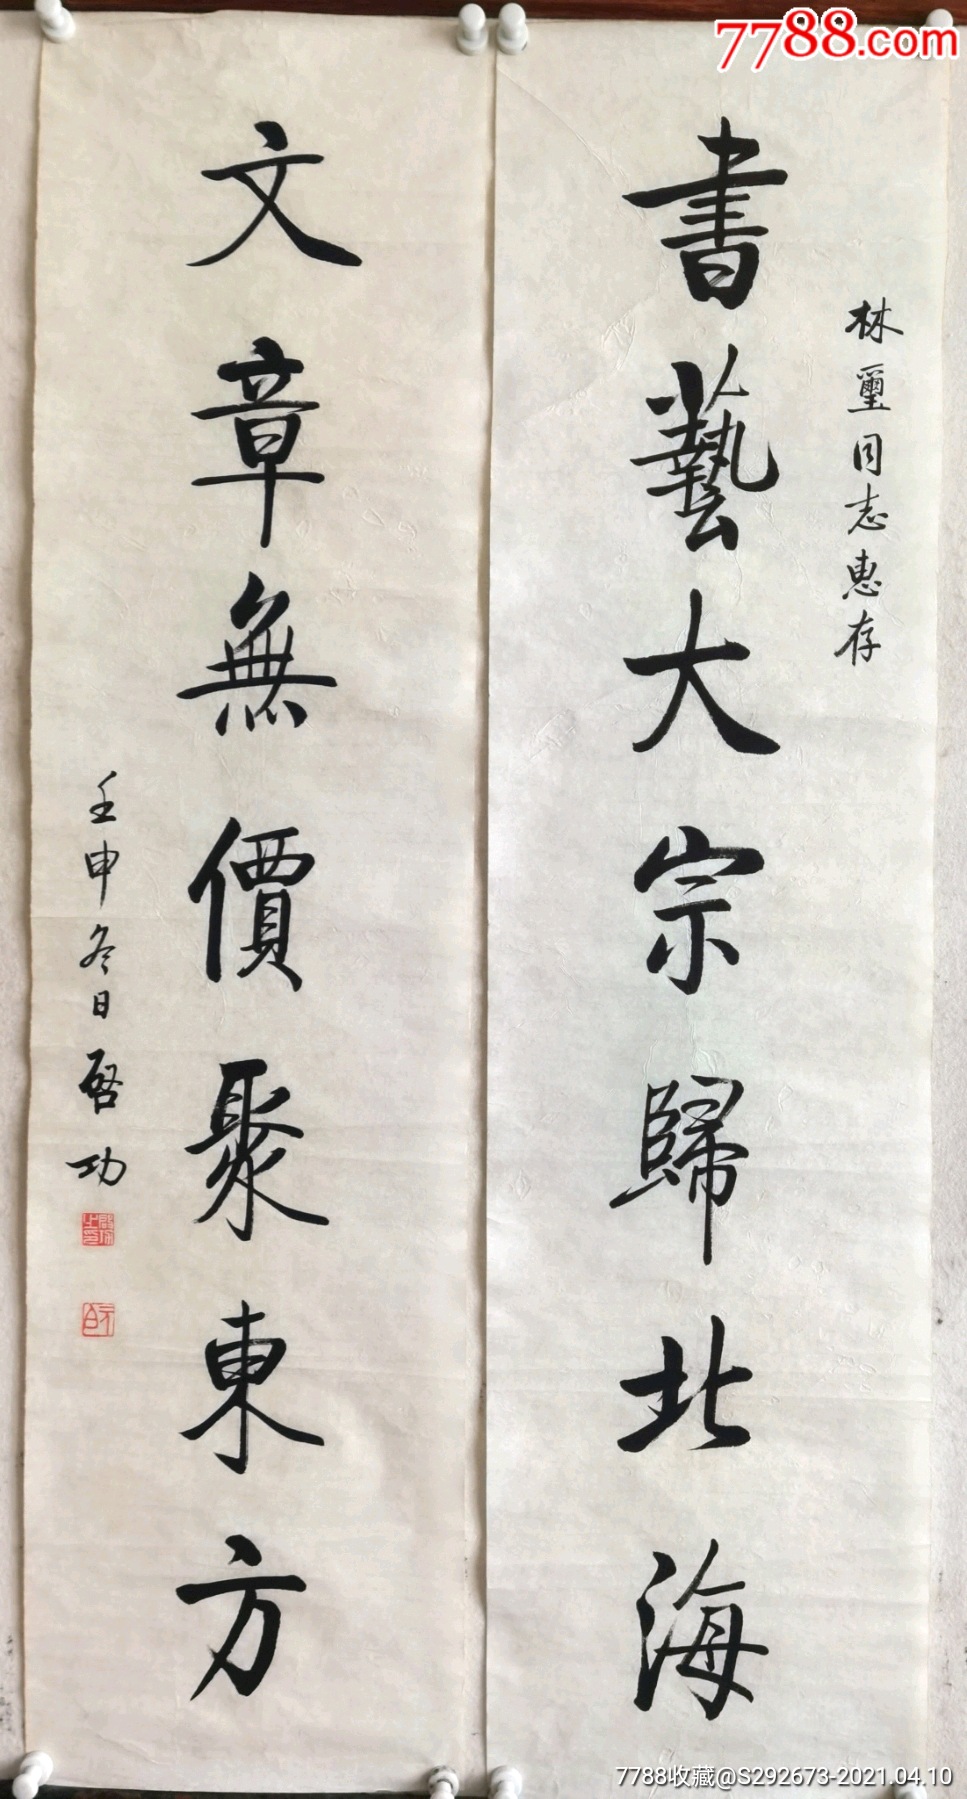 7788.com
林璽同志惠存
書藝大宗歸北海
文章無價聚東方
壬申冬日啓功
7788收藏@S292673-2021.04.10